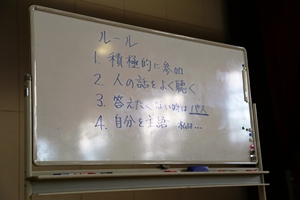 ルール
1. 積極的に参加
2. 人の話をよく聴く
3. 答えたくない時はパス
4. 自分を主語 私は…